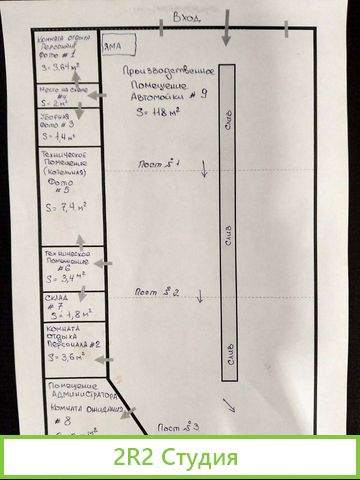 Вход
Комната отдыха
Персонала
Фото # 1
S= 3,64 м²
ЯМА
Место на схеме
#4
S= 2 м²
Уборная
Фото # 3
S= 1,4 м²
Производственное
Помещение
Автомойки # 9
S= 118 м²
Слив
Техническое
Помещение
(котельная)
Фото
# 5
S= 7,4 м²
Пост №1
Слив
Техническое
Помещение
#6
S= 3,4 м²
Склад
# 7
S= 1,8 м²
Пост №2
Комната
отдыха
Персонала #2
S= 3,6 м²
Слив
Помещение
Администратора
Комната ожидания
# 8
Пост №3
2R2 Студия